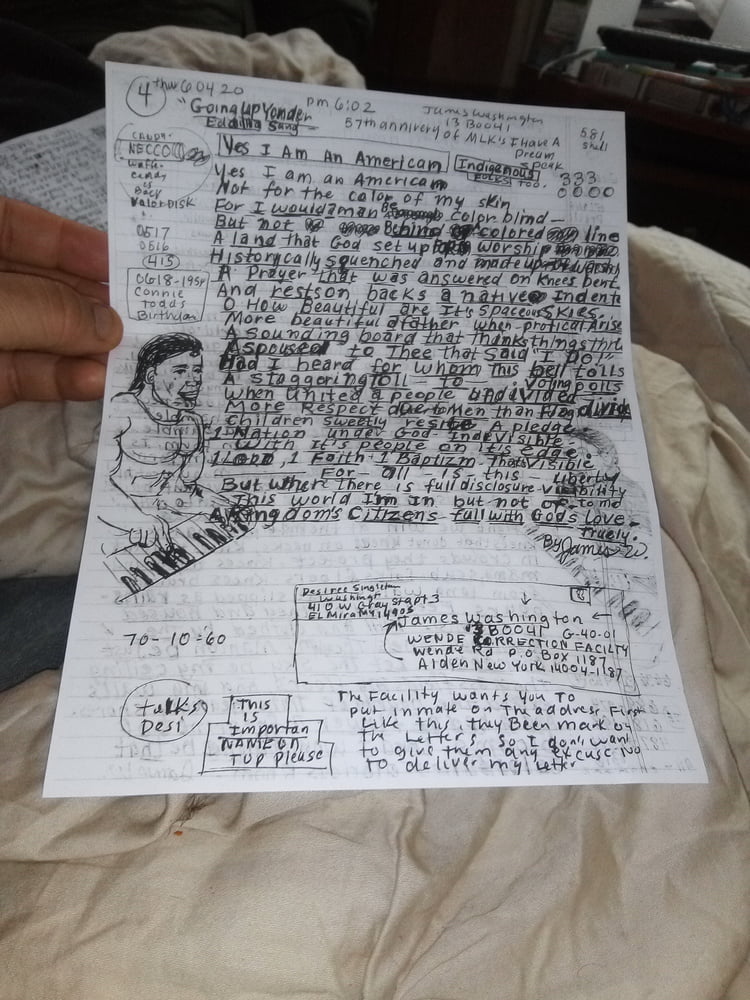 4
thu 60420
"Going Up Yonder
Edding Sang
PM 6:02
James Washington
13 B0041
57th annivery of MLK's I Have A
Dream
Speak
581
Shell
CANDY-
NECCO
Wafle-
candy
is
Back
Valor Disk
0517
0516
(413)
0618-195
Connie
Todds
Birthday
Yes I Am An American
Indigenous
FOLKS TOO.
333
0000
Yes I am an American
Not for the color of my skin
For I would a man Be color blind-
But not Behind colored line
A land that God set up to worship
Historically squenched and made up
A Prayer that was answered on Knees bent
And rests on backs a native Indent
O How Beautiful are It's Spaceous Skies.
More beautiful a father when protical Arise
A sounding board that thanks things thru
Aspoused to Thee that Said "I Do!"
Had I heard for whom this bell tolls
A staggoring Toll - to Voting polls
When united a people undivided
More Respect due to Men than Flag divid
Children sweetly resite A pledge
1 Nation under God-Indevisible-
With It's people on It's edge.
1 Lord, 1 Faith + 1 Baptizm. Thats Visible
For - all - Is this - Liberty
But When There is full disclosure visibility
This world I'm in but not of. to me
A Kingdom's Citizens full with Gods Love-
Truely.
By James W.
70-10:60
Desiree Singleton
Washingt
410 W Gray St apt 3
ELMira NY 14905
James Washington
13 B0041 G-40-01
WENDE CORRECTION FACILTY
Wende Rd P.O Box 1187
Alden New York 14004-1187
talks
Desi
This
is
Importan
NAME ON
TOP Please
The Facility wants You To
put inmate on The address First
Like this. They Been mark by
the Letters. So I don't want
to give them any excuse No
TO deliver my letter